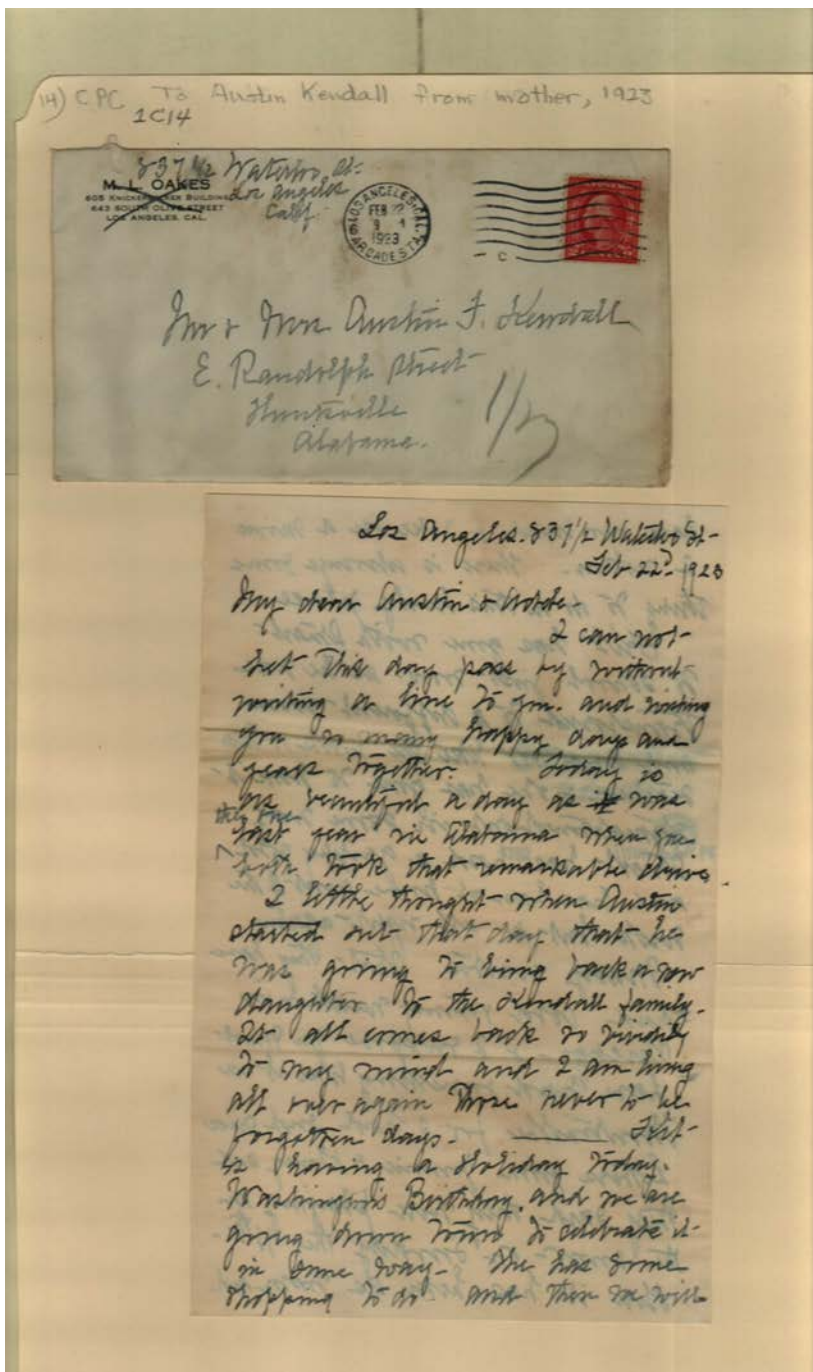 14) CPC To Austin Kendall from mother, 1923
1C14
837 1/2 Waterloo St.
Los Angeles
Calif.
M. L. OAKES
605 KNICKERBOCKER BUILDING
643 SOUTH OLIVE STREET
LOS ANGELES, CAL.
LOS ANGELES, CAL.
FEB 22
1923
ARCADE STA.
C
Mr & Mrs Austin F. Kendall
E. Randolph Street
Huntsville
Alabama.
Los Angeles. 837 1/2 Waterloo St-
Feb 22d 1923
My dear Austin &
I can not
let this day pass by without
writing a line to you. and wishing
you so many happy days and
years together. Today is
as beautiful a day as it was
this one
last year in Alabama when you
both took that remarkable drive.
I little thought when Austin
started out that day that he
was going to bring back a new
daughter to the Kendall family.
It all comes back so vividly
to my mind and I am living
all over again those never to be
forgotten days. ——
is having a Holiday today.
Washington's Birthday. and we are
going down town to celebrate it
in some way - She has some
shopping to do and then we will